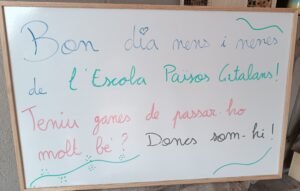 Bon dia nens i nenes
de l'Escola Països Catalans!
Teniu ganes de passar-ho
molt bé? Doncs som-hi!